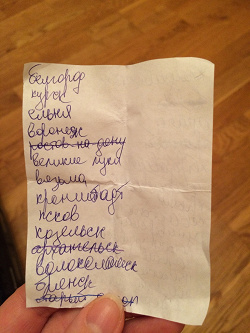 белгород
курск
ельня
воронеж
ростов на дону
великие луки
вязьма
кронштадт
псков
козельск
архангельск
волоколамск
брянск